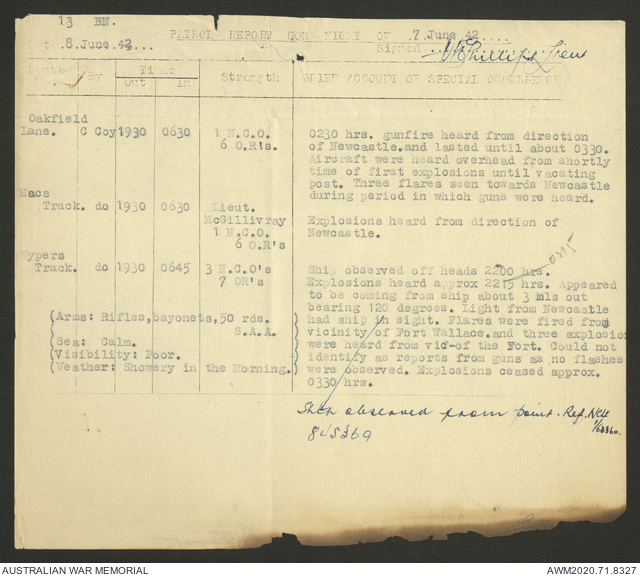 13 BN.
PATROL REPORT FOR NIGHT OF .7 June 42....
8.June 42.... Signed ...W Phillips. Lieu
By Times Strength BRIEF ACCOUNT OF SPECIAL OCCURRENCE
Out In
Oakfield
Lane. C Coy 1930 0630 1 N.C.O. 0230 hrs. gunfire heard from direction
6 O.R's. of Newcastle.and lasted until about 0330.
Aircraft were heard overhead from shortly
time of first explosions until vacating
post. Three flares seen towards Newcastle
Macs during period in which guns were heard.
Track. do 1930 0630 Lieut.
McGillivray Explosions heard from direction of
1 N.C.O. Newcastle.
6 O.R's
Nypers 0215
Track. do 1930 0645 3 N.C.O's Ship observed off heads 2200 hrs.
7 OR's Explosions heard approx 2215 hrs. Appeared
to be coming from ship about 3 mls out
bearing 120 degrees. Light from Newcastle
(Arms: Rifles,bayonets,50 rds. had ship in sight. Flares were fired from
S.A.A. vicinity of Fort Wallace.and three explosion
(Sea: Calm. were heard from vic-of the Fort. Could not
(Visibility: Poor. identify as reports from guns as no flashes
(Weather: Showery in the Morning.) were observed. Explosions ceased approx.
0330 hrs.
observed from point. Ref. NCLE
845369 1/63360.
AUSTRALIAN WAR MEMORIAL AWM2020.71.8327